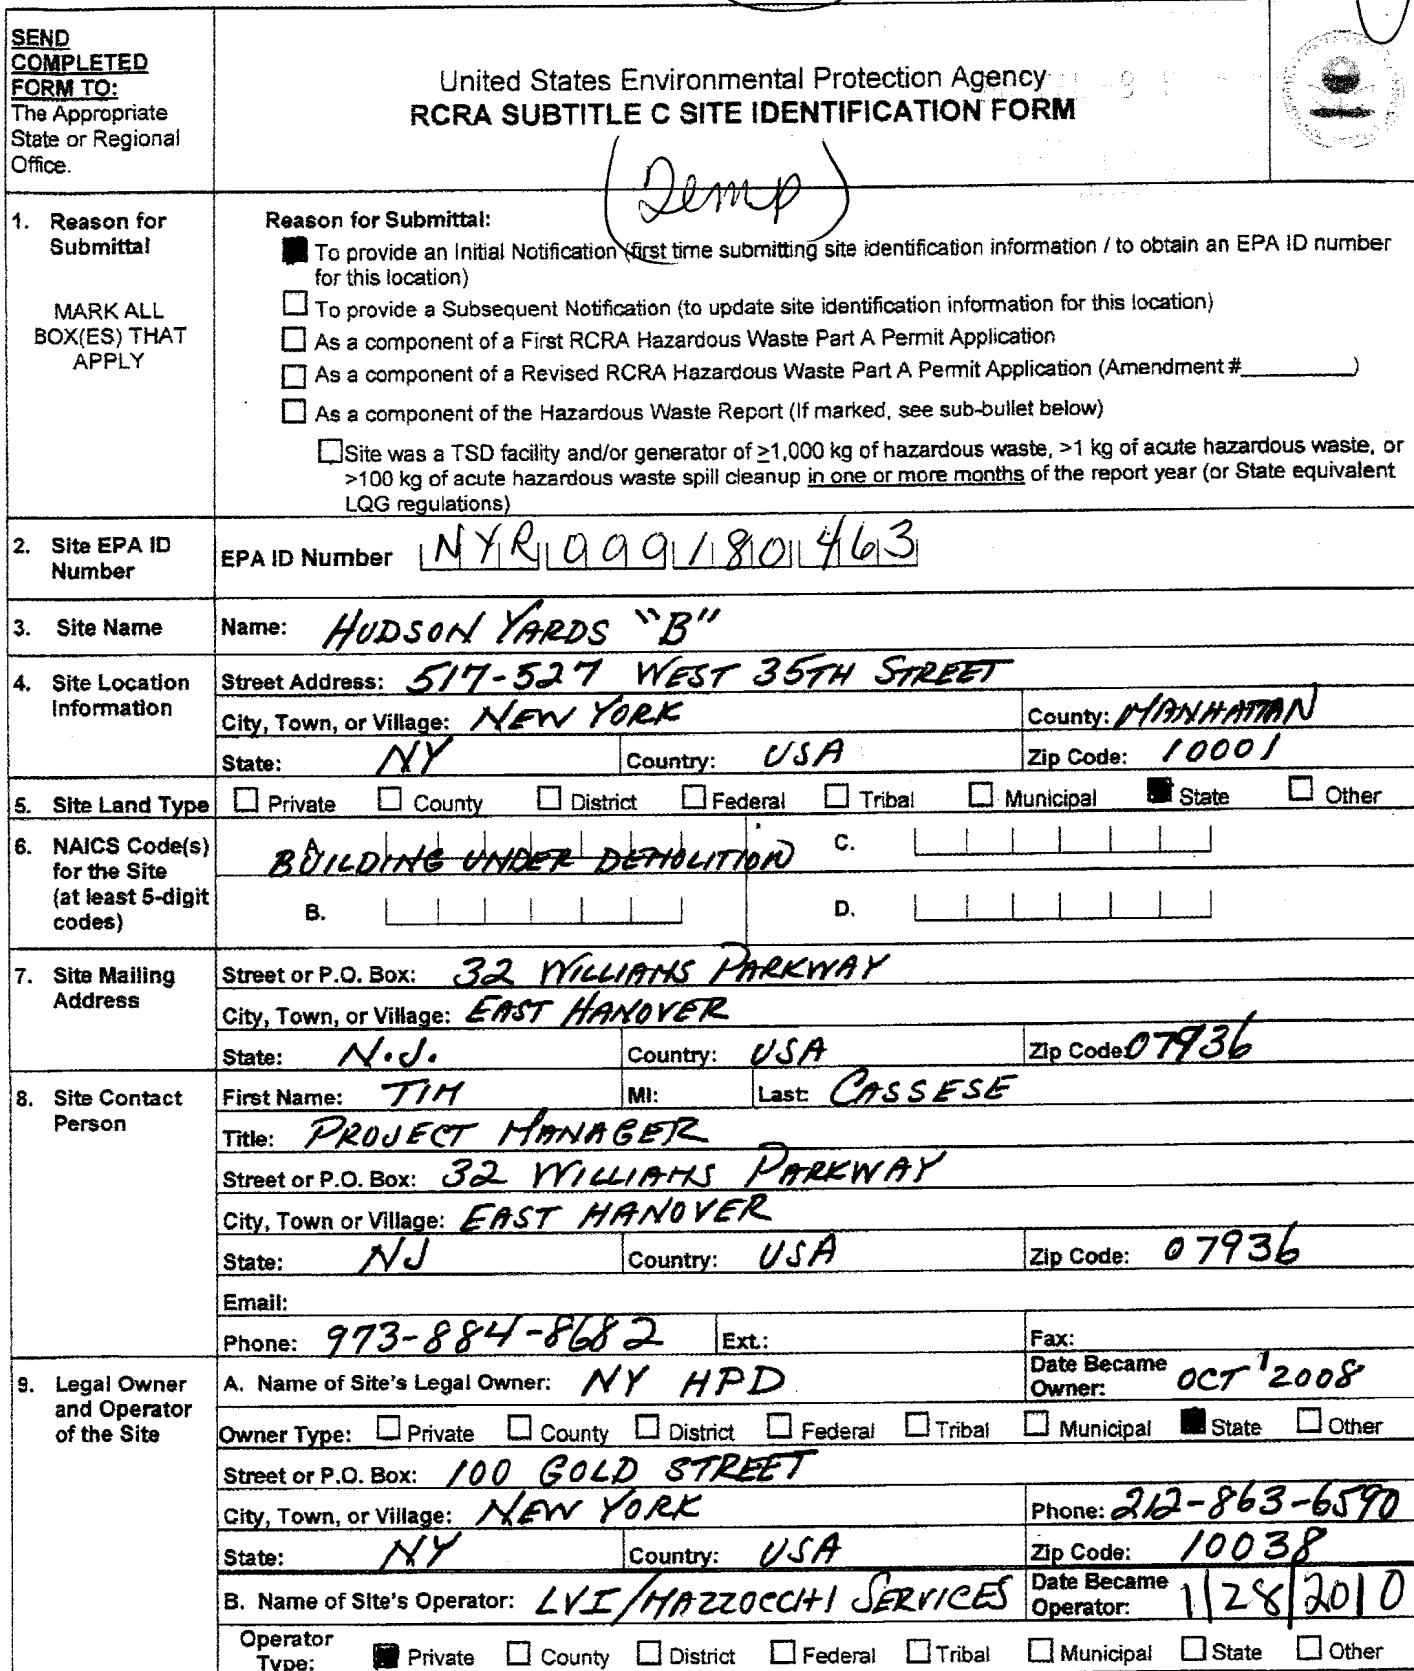 SEND
COMPLETED
FORM TO:
The Appropriate
State or Regional
Office.
United States Environmental Protection Agency
RCRA SUBTITLE C SITE IDENTIFICATION FORM
(Temp)
1. Reason for
Submittal
MARK ALL
BOX(ES) THAT
APPLY
Reason for Submittal:
To provide an Initial Notification (first time submitting site identification information / to obtain an EPA ID number
for this location)
To provide a Subsequent Notification (to update site identification information for this location)
As a component of a First RCRA Hazardous Waste Part A Permit Application
As a component of a Revised RCRA Hazardous Waste Part A Permit Application (Amendment #________)
As a component of the Hazardous Waste Report (If marked, see sub-bullet below)
Site was a TSD facility and/or generator of ≥1,000 kg of hazardous waste, >1 kg of acute hazardous waste, or
>100 kg of acute hazardous waste spill cleanup in one or more months of the report year (or State equivalent
LQG regulations)
2. Site EPA ID
Number
EPA ID Number NYR 000 180 463
3. Site Name
Name: HUDSON YARDS "B"
4. Site Location
Information
Street Address: 517-527 WEST 35TH STREET
City, Town, or Village: NEW YORK County: MANHATTAN
State: NY Country: USA Zip Code: 10001
5. Site Land Type Private County District Federal Tribal Municipal State Other
6. NAICS Code(s)
for the Site
(at least 5-digit
codes)
A. BUILDING UNDER DEMOLITION C.
B. D.
7. Site Mailing
Address
Street or P.O. Box: 32 WILLIAMS PARKWAY
City, Town, or Village: EAST HANOVER
State: N.J. Country: USA Zip Code: 07936
8. Site Contact
Person
First Name: TIM MI: Last: CASSESE
Title: PROJECT MANAGER
Street or P.O. Box: 32 WILLIAMS PARKWAY
City, Town or Village: EAST HANOVER
State: NJ Country: USA Zip Code: 07936
Email:
Phone: 973-884-8682 Ext.: Fax:
9. Legal Owner
and Operator
of the Site
A. Name of Site's Legal Owner: NY HPD Date Became Owner: OCT 1 2008
Owner Type: Private County District Federal Tribal Municipal State Other
Street or P.O. Box: 100 GOLD STREET
City, Town, or Village: NEW YORK Phone: 212-863-6590
State: NY Country: USA Zip Code: 10038
B. Name of Site's Operator: LVI/MAZZOCCHI SERVICES Date Became Operator: 1/28/2010
Operator Type: Private County District Federal Tribal Municipal State Other